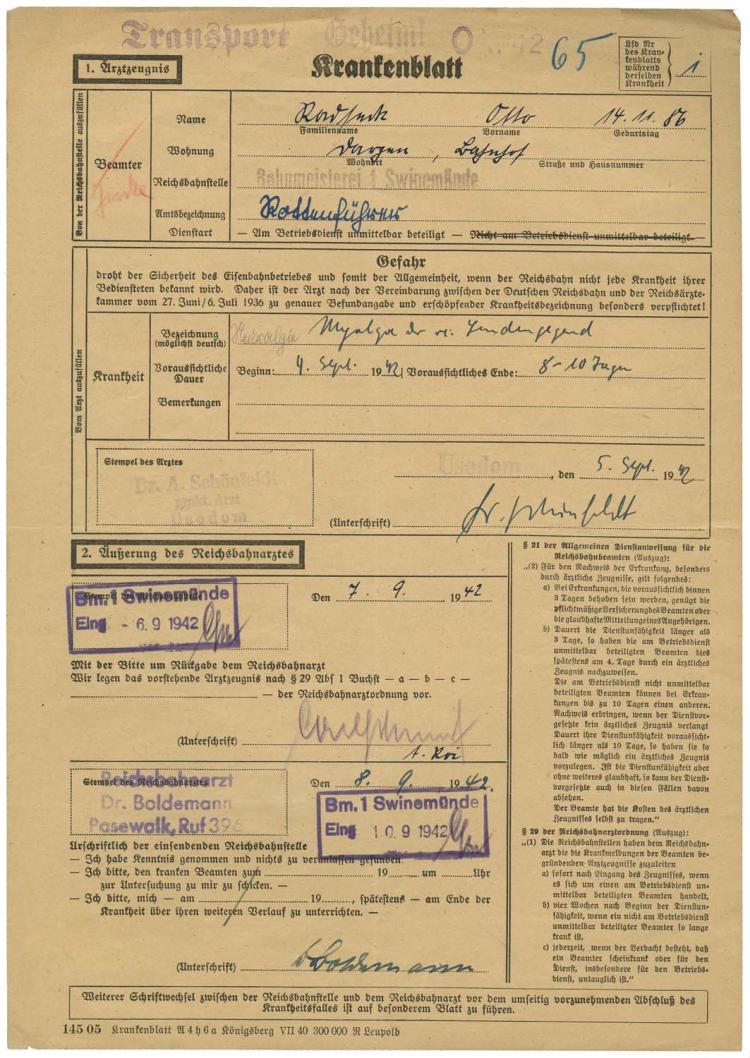 Transport Geheim!
65
Krankenblatt
Lfd Nr des Krankenblatts während derselben Krankheit } 1
1. Arztzeugnis
Von der Reichsbahnstelle auszufüllen
Beamter
Name Otto 14.11.86
Familienname Vorname Geburtstag
Wohnung Dargen, Bahnhof
Wohnort Straße und Hausnummer
Reichsbahnstelle Bahnmeisterei 1 Swinemünde
Amtsbezeichnung Rottenführer
Dienstart — Am Betriebsdienst unmittelbar beteiligt — Nicht am Betriebsdienst unmittelbar beteiligt.
Gefahr
droht der Sicherheit des Eisenbahnbetriebes und somit der Allgemeinheit, wenn der Reichsbahn nicht jede Krankheit ihrer
Bediensteten bekannt wird. Daher ist der Arzt nach der Vereinbarung zwischen der Deutschen Reichsbahn und der Reichsärzte-
kammer vom 27. Juni/6. Juli 1936 zu genauer Befundangabe und erschöpfender Krankheitsbezeichnung besonders verpflichtet!
Vom Arzt auszufüllen
Krankheit
Bezeichnung (möglichst deutsch) Neuralgie Myalgie der re. Lendengegend
Voraussichtliche Dauer Beginn: 4. Sept. 1942 Voraussichtliches Ende: 8-10 Tagen
Bemerkungen
Stempel des Arztes
Dr. A. Schönfeldt
prakt. Arzt
Usedom
Usedom, den 5. Sept. 1942
(Unterschrift) Dr. Schönfeldt
2. Äußerung des Reichsbahnarztes
Bm. 1 Swinemünde
Eing - 6. 9 1942
Den 7. 9. 1942
Mit der Bitte um Rückgabe dem Reichsbahnarzt
Wir legen das vorstehende Arztzeugnis nach § 29 Abs 1 Buchst — a — b — c —
— der Reichsbahnarztordnung vor.
(Unterschrift)
Stempel des Reichsbahnarztes
Reichsbahnarzt
Dr. Boldemann
Pasewalk, Ruf 396
Den 8. 9. 1942.
Bm. 1 Swinemünde
Eing 10. 9 1942
Urschriftlich der einsendenden Reichsbahnstelle
— Ich habe Kenntnis genommen und nichts zu veranlassen gefunden.
— Ich bitte, den kranken Beamten zum 19 um Uhr
zur Untersuchung zu mir zu schicken. —
— Ich bitte, mich — am 19, spätestens — am Ende der
Krankheit über ihren weiteren Verlauf zu unterrichten. —
(Unterschrift) Boldemann
§ 21 der Allgemeinen Dienstanweisung für die
Reichsbahnbeamten (Auszug):
„(2) Für den Nachweis der Erkrankung, besonders
durch ärztliche Zeugnisse, gilt folgendes:
a) Bei Erkrankungen, die voraussichtlich binnen
3 Tagen behoben sein werden, genügt die
pflichtmäßige Versicherung des Beamten oder
die glaubhafte Mitteilung eines Angehörigen.
b) Dauert die Dienstunfähigkeit länger als
3 Tage, so haben die am Betriebsdienst
unmittelbar beteiligten Beamten dies
spätestens am 4. Tage durch ein ärztliches
Zeugnis nachzuweisen.
Die am Betriebsdienst nicht unmittelbar
beteiligten Beamten können bei Erkran-
kungen bis zu 10 Tagen einen anderen
Nachweis erbringen, wenn der Dienstvor-
gesetzte kein ärztliches Zeugnis verlangt
Dauert ihre Dienstunfähigkeit voraussicht-
lich länger als 10 Tage, so haben sie so
bald wie möglich ein ärztliches Zeugnis
vorzulegen. Ist die Dienstunfähigkeit aber
ohne weiteres glaubhaft, so kann der Dienst-
vorgesetzte auch in diesen Fällen davon
absehen.
Der Beamte hat die Kosten des ärztlichen
Zeugnisses selbst zu tragen.“
§ 29 der Reichsbahnarztordnung (Auszug):
„(1) Die Reichsbahnstellen haben dem Reichsbahn-
arzt die die Krankmeldungen der Beamten be-
gründenden Arztzeugnisse zuzuleiten
a) sofort nach Eingang des Zeugnisses, wenn
es sich um einen am Betriebsdienst un-
mittelbar beteiligten Beamten handelt,
b) vier Wochen nach Beginn der Dienstun-
fähigkeit, wenn ein nicht am Betriebsdienst
unmittelbar beteiligter Beamter so lange
krank ist,
c) jederzeit, wenn der Verdacht besteht, daß
ein Beamter scheinkrank oder für den
Dienst, insbesondere für den Betriebs-
dienst, untauglich ist.“
Weiterer Schriftwechsel zwischen der Reichsbahnstelle und dem Reichsbahnarzt vor dem umseitig vorzunehmenden Abschluß des
Krankheitsfalles ist auf besonderem Blatt zu führen.
145 05 Krankenblatt A 4 h 6 a Königsberg VII 40 300 000 R Leupold